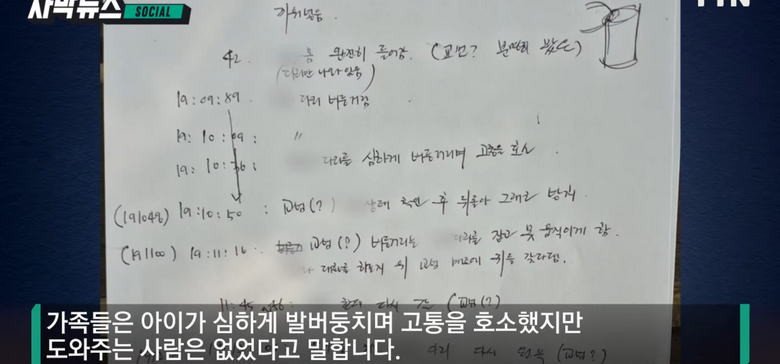 자막뉴스 SOCIAL YTN
42 몸 완전히 들어감 (교범? 분명히 봤으)
(다리만 나와 있음)
19:09:89 다리 버둥거림
19:10:09: "
19:10:36: 다리를 심하게 버둥거리며 고통을 호소
(191048) 19:10:50 : 교범(?) 상태 확인 후 뒤돌아 그대로 방치
(191100) 19:11:16. 교범(?) 버둥거리는 다리를 잡고 못 움직이게 함.
귀를 갖다댐.
다시 (교범(?)
다리 다시 (교범?)
가족들은 아이가 심하게 발버둥치며 고통을 호소했지만
도와주는 사람은 없었다고 말합니다.